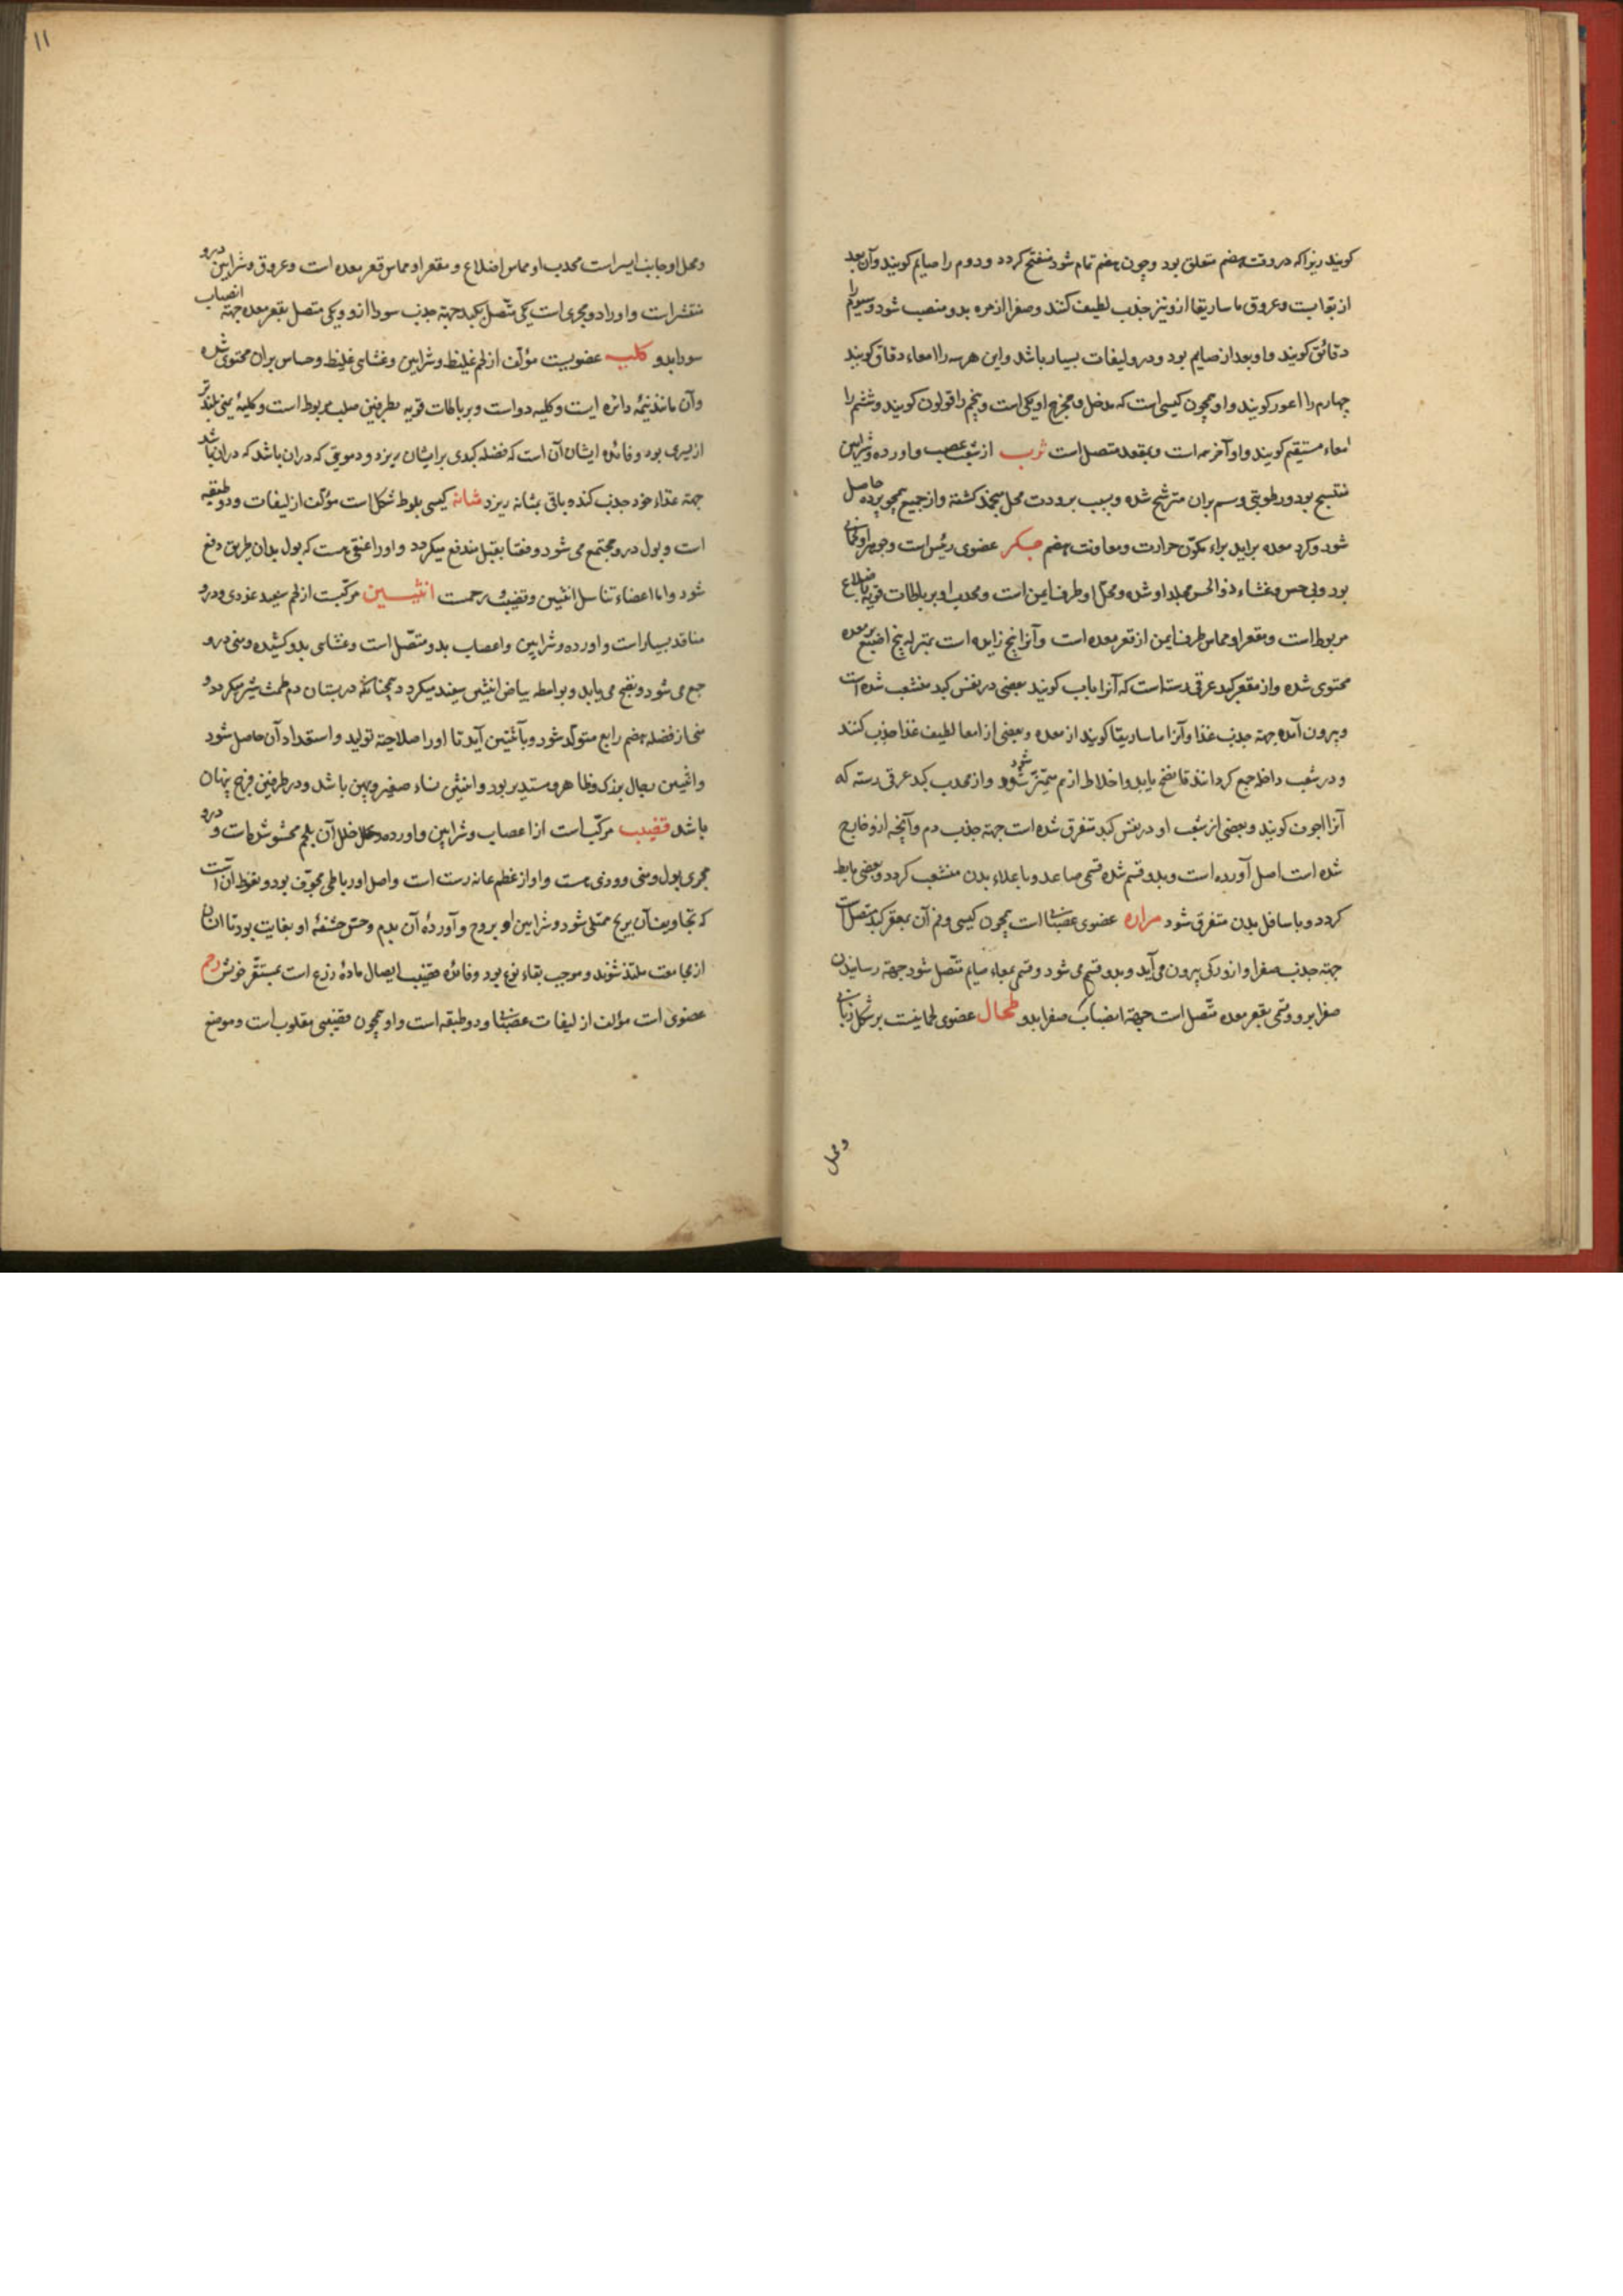 کویند زیرا که در وقت هضم متعلق بود و چون هضم تمام شود منفتح کردد و دوم را صایم کویند و آن بعد
از بوابست و عروق ماساریقا ازو نیز جذب لطیف کنند و صفرا از مره بدو منصب شود و سیوم را
دقائق کویند و او بعد از صایم بود و درو لیفات بسیار باشد و این هر سه را امعاء دقاق کویند
چهارم را اعور کویند و او همچون کیسی است که مدخل و مخرج او یکی است و پنجم را قولون کویند و ششم را
امعاء مستقیم کویند و او آخر همه است و بمقعد متصل است ثرب از شعب عصب و اورده و شرایین
منتسج بود و رطوبتی دسم بران مترشح شده و بسبب برودت محل منجمد کشته و از جمیع همچو پرده حاصل
شود و کرد معده برآید براء تکوّن حرارت و معاونت هضم جکر عضوی رئیس است و جوهر او لحمانی
بود و بی حس و غشاء ذو الحس مجلد او شده و محل او طرف ایمن است و محدب او بر باطات قویه باضلاع
مربوط است و مقعر او مماس طرف ایمن از قعر معده است و آنرا پنج زایده است بمنزله پنج اصبع بر معده
محتوی شده و از مقعر کبد عرقی رسته است که آنرا باب کویند بعضی در نفس کبد منشعب شده است
و بیرون آمده جهته جذب غذا و آنرا ماساریقا کویند از معده و بعضی از امعا لطیف غذا جذب کنند
و در شعب داخله جمع کردانند تا نضج یابد و اخلاط از هم متمیّز شود و از محدب کبد عرقی رسته که
آنرا اجوف کویند و بعضی از شعب او در نفس کبد متفرق شده است جهته جذب دم و آنچه ازو خارج
شده است اصل آورده است و بدو قسم شده قسمی صاعد و با علاء بدن منشعب کردد و بعضی هابط
کردد و باسافل بدن متفرق شود مراره عضوی عصبانی است همچون کیسی و فم آن بمقعر کبد متصل است
جهته جذب صفرا و از ورکی بیرون می آید و بدو قسم می شود و قسمی بمعاء صایم متّصل شود جهته رسانیدن
صفرا برو و قسمی بقعر معده متّصل است جهته انصباب صفرا بدو طحال عضوی لحمانیست بر شکل زبانی
و محل
۱۱
و محل او جانب ایسر است محدب او مماس اضلاع و مقعر او مماس قعر معده است و عروق و شرایین درو
منتشر است و او را دو مجری است یکی متّصل بکبد جهته جذب سودا ازو و یکی متصل بقعر معده جهته انصباب
سودا بدو کلیه عضویست مؤلف از لحم غلیظ و شرایین و غشای غلیظ و حساس بران محتوی شده
و آن مانند نیمه دائره ایست و کلیه دو است و بر باطات قویه بطرفین صلب مربوط است و کلیه یمنی بلند تر
از یسری بود و فائده ایشان آن است که فضله کبدی بر ایشان ریزد و دمویتی که دران باشد که دران باشد
جهته غذاء خود جذب کنده باقی بمثانه ریزد مثانه کیسی بلوط شکل است مؤلف از لیفات و دو طبقه
است و بول درو مجتمع می شود و وقتا بقبل مندفع میکردد و او را عنقی هست که بول بدان طریق دفع
شود و اما اعضاء تناسل انثیین و قضیب و رحمست انثیین مرکّبست از لحم سپید غددی و درو
منافذ بسیار است و اورده و شرایین و اعصاب بدو متّصل است و غشای بدو کشیده و منی درو
جمع می شود و نضج می یابد و بواسطه بیاض انثیین سپید میکردد همچنانکه در بستان دم طمث شیر میکردد و
منی از فضله هضم رابع متولّد شود و بانثیین آید تا او را صلاحیته تولید و استعداد آن حاصل شود
و انثیین رجال بزرک و ظاهر و مستدیر بود و انثیین نساء صغیر و پهن باشد و در طرفین فرج پنهان
باشد قضیب مرکّب است از اعصاب و شرایین و اورده خلل آن بلحم محشو شده است و درو
مجری بول و منی و وذی هست و او از عظم عانه رست است و اصل او رباطی مجوّف بود و نعوظ آن است
که تجاویف آن بریح ممتلی شود و شرایین او بروح و آورده آن بدم و حس حشفه او بغایت بود تا انسان
از مجامعت ملتذ شوند و موجب بقاء نوع بود و فائده قضیب ایصال ماده زرع است بمستقّر خویش رحم
عضوی است مؤلف از لیفات عصبانی و دو طبقه است و او همچون قضیبی مقلوب است و موضع